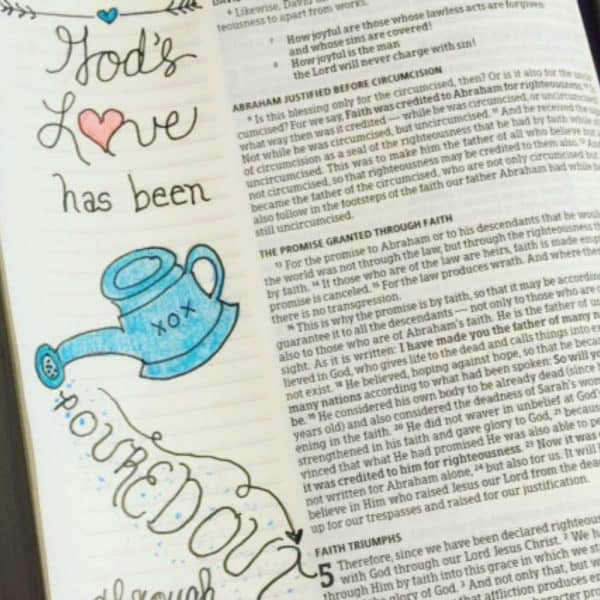 God's
Love
has been
xox
POURED OUT
through
6 Likewise, David
teousness to apart from works:
7 How joyful are those whose lawless acts are forgiven
and whose sins are covered!
8 How joyful is the man
the Lord will never charge with sin!
ABRAHAM JUSTIFIED BEFORE CIRCUMCISION
9 Is this blessing only for the circumcised, then? Or is it also for the
cumcised? For we say, Faith was credited to Abraham for righteousness.
what way then was it credited — while he was circumcised, or uncircumcised?
Not while he was circumcised, but uncircumcised. And he received the
of circumcision as a seal of the righteousness that he had by faith while
uncircumcised. This was to make him the father of all who believe but
not circumcised, so that righteousness may be credited to them also.
became the father of the circumcised, who are not only circumcised but
also follow in the footsteps of the faith our father Abraham had while
still uncircumcised.
THE PROMISE GRANTED THROUGH FAITH
13 For the promise to Abraham or to his descendants that he would
the world was not through the law, but through the righteousness
by faith. 14 If those who are of the law are heirs, faith is made
promise is canceled. 15 For the law produces wrath. And where the
there is no transgression.
16 This is why the promise is by faith, so that it may be according
guarantee it to all the descendants — not only to those who are
also to those who are of Abraham's faith. He is the father of us
sight. As it is written: I have made you the father of many
lieved in God, who gives life to the dead and calls things into
not exist. 18 He believed, hoping against hope, so that he became
many nations according to what had been spoken: So will your
be. 19 He considered his own body to be already dead (since
years old) and also considered the deadness of Sarah's womb
ening in the faith. 20 He did not waver in unbelief at God's
strengthened in his faith and gave glory to God, 21 because
vinced that what He had promised He was also able to
it was credited to him for righteousness. 23 Now it was
not written for Abraham alone, 24 but also for us. It will
believe in Him who raised Jesus our Lord from the dead
up for our trespasses and raised for our justification.
FAITH TRIUMPHS
5 Therefore, since we have been declared righteous
with God through our Lord Jesus Christ. 2 We
through Him by faith into this grace in which we
the glory of God. 3 And not only that, but we
that affliction produces
character